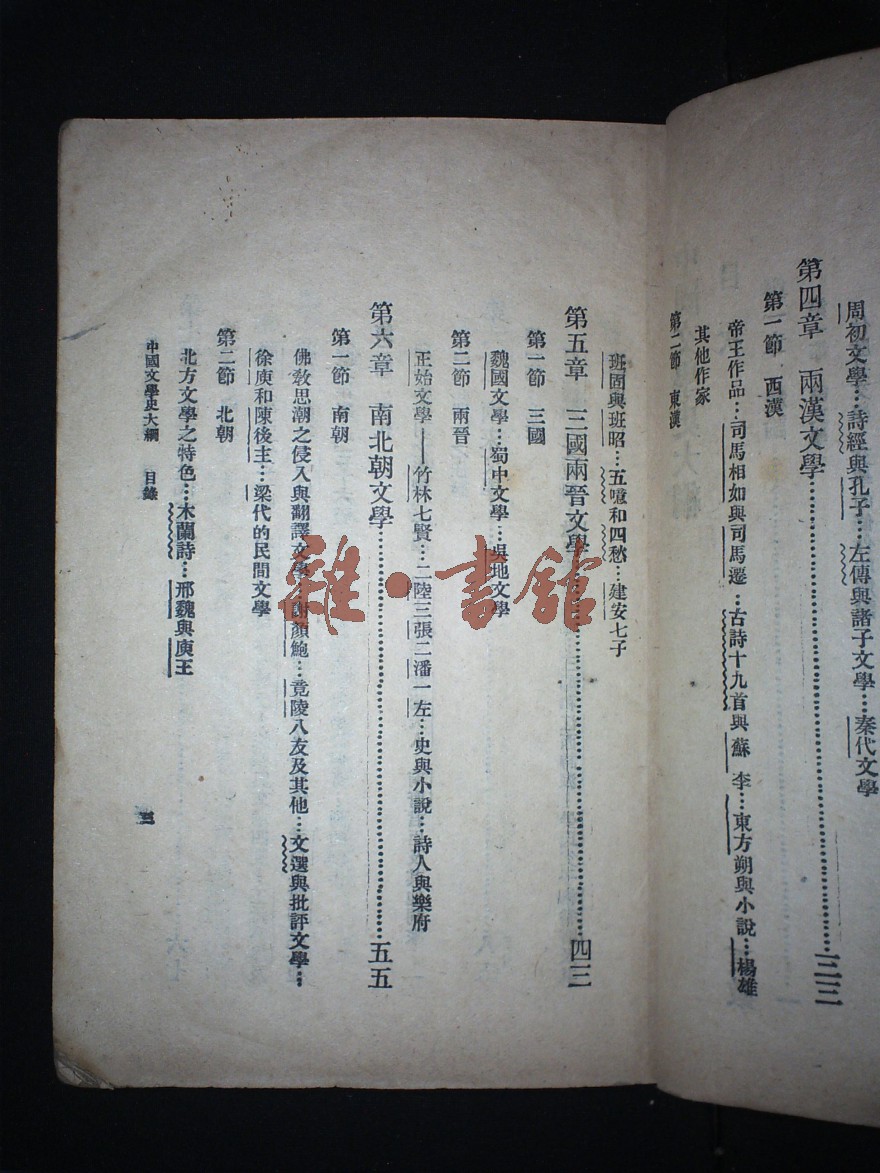 周初文學…詩經與孔子…左傳與諸子文學…秦代文學
第四章　兩漢文學……………………二三
第一節　西漢
帝王作品…司馬相如與司馬遷…古詩十九首與蘇李…東方朔與小說…楊雄
其他作家
第二節　東漢
班固與班昭…五噫和四愁…建安七子
第五章　三國兩晉文學……………………四三
第一節　三國
魏國文學…蜀中文學…吳地文學
第二節　兩晉
正始文學——竹林七賢…二陸三張二潘一左…史與小說…詩人與樂府
第六章　南北朝文學……………………五五
第一節　南朝
佛教思潮之侵入與翻譯文學…謝顏鮑…竟陵八友及其他…文選與批評文學…
徐庾和陳後主…梁代的民間文學
第二節　北朝
北方文學之特色…木蘭詩…邢魏與庾王
中國文學史大綱　目錄
三
雜·書館